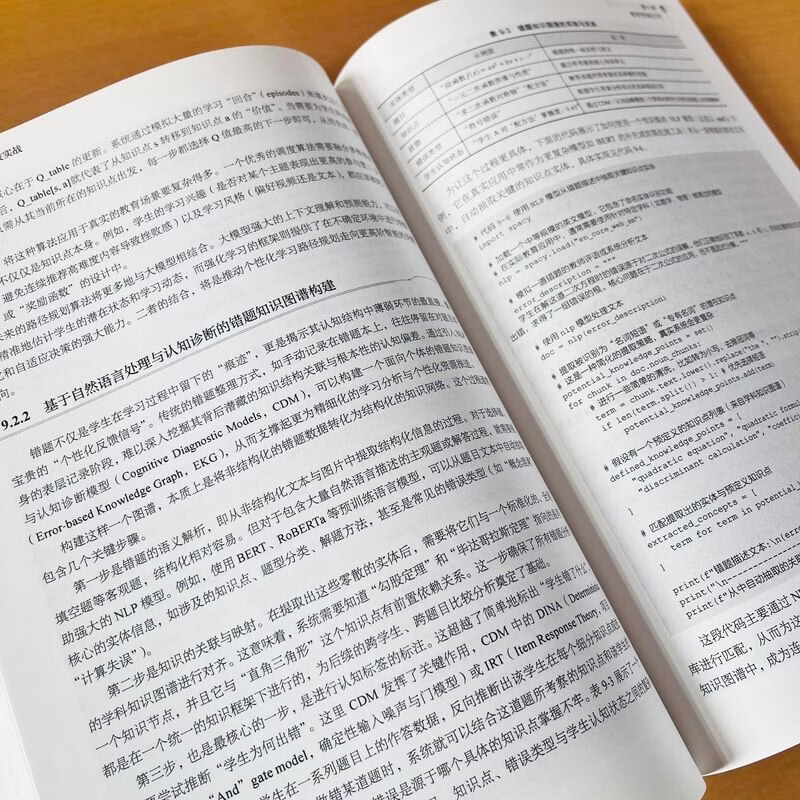 实战
核心在于 Q_table 的更新。系统通过模拟大量的学习“回合”（episodes）来填充
后，Q_table[s, a]就代表了从知识点 s 转移到知识点 a 的“价值”。当需要为学生
需从其当前所在的知识点出发，每一步都选择 Q 值最高的下一步即可，从而生成
将这种算法应用于真实的教育场景要复杂得多。一个优秀的调度算法需要融合多
不仅仅是知识点本身。例如，学生的学习兴趣（是否对某个主题表现出更高的参与度
避免连续推荐高难度内容导致挫败感）以及学习风格（偏好视频还是文本），都应
或“奖励函数”的设计中。
来的路径规划算法将更多地与大模型相结合。大模型强大的上下文理解和预测能力，可
精准地估计学生的潜在状态和学习动态，而强化学习的框架则提供了在不确定环境中进行
和自适应决策的强大能力。二者的结合，将是推动个性化学习路径规划走向更高阶智能的
向。
9.2.2 基于自然语言处理与认知诊断的错题知识图谱构建
错题不仅是学生在学习过程中留下的“痕迹”，更是揭示其认知结构中薄弱环节的最直接、
宝贵的“个性化反馈信号”。传统的错题整理方式，如手动记录在错题本上，往往停留在对题目
身的表层记录阶段，难以深入挖掘其背后潜藏的知识结构关联与根本性的认知偏差。通过引入
与认知诊断模型（Cognitive Diagnostic Models, CDM），可以构建一个面向个体的错题知识图谱
（Error-based Knowledge Graph, EKG），从而支撑起更为精细化的学习分析与个性化资源推送。
构建这样一个图谱，本质上是将非结构化的错题数据转化为结构化的知识网络。这个过程
包含几个关键步骤。
第一步是错题的语义解析，即从非结构化文本与图片中提取结构化信息的过程。对于选择题、
填空题等客观题，结构化相对容易。但对于包含大量自然语言描述的主观题或解答过程，就需要
助强大的 NLP 模型。例如，使用 BERT、RoBERTa 等预训练语言模型，可以从题目文本中自动
核心的实体信息，如涉及的知识点、题型分类、解题方法，甚至是常见的错误类型（如“概念混淆”
“计算失误”）。
第二步是知识的关联与映射。在提取出这些零散的实体后，需要将它们与一个标准化的、
的学科知识图谱进行对齐。这意味着，系统需要知道“勾股定理”和“毕达哥拉斯定理”指向的是
一个知识节点，并且它与“直角三角形”这个知识点有前置依赖关系。这一步确保了所有错题分
都是在一个统一的知识框架下进行的，为后续的跨学生、跨题目比较分析奠定了基础。
第三步，也是最核心的一步，是进行认知标签的标注。这超越了简单地标出“学生错了什么”
要尝试推断“学生为何出错”。这里 CDM 发挥了关键作用，CDM 中的 DINA（Deterministic
“And” gate model，确定性输入噪声与门模型）或 IRT（Item Response Theory,
学生在一系列题目上的作答数据，反向推断出该学生在每个细分知识点
做错某道题时，系统就可以结合这道题所考察的知识点和该学生
错误是源于哪个具体的知识点掌握不牢。表 9-3 展示了一个
知识点、错误类型与学生认知状态之间的
表 9-3 错题知识图谱的实体与关系
实体类型
示例值
题目
“设函数 f(x) = ax² + bx + ···”
知识点
“一元二次函数图像与性质”
技能
“求二次函数对称轴”“配方法”
错误类型
“符号错误”
学生认知状态
“学生 A 对‘配方法’掌握度：0.45”
为让这个过程更具体，下面的代码展示了如何使用一个预训练的 NLP 模型
例，它在真实应用中常作为更复杂模型如 BERT 的补充或前置处理工具
中，自动抽取关键的知识点实体，具体实现见代码 9-6。
# 代码 9-6 使用 NLP 模型从错题描述中抽取知识点实体
import spacy
# 加载一个中等规模的英文模型，它包含了命名实体识别功能
# 在实际教育应用中，通常需要使用针对特定学科（如数学、物理）数据微调的模型
nlp = spacy.load("en_core_web_sm")
# 模拟一道错题的教师评语或系统分析文本
error_description = """
学生在解这道二次方程时的错误源于对二次公式的误解。
出错，求得了一组错误的根。核心问题在于二次公式的应用，而不是因式分解。"""
# 使用 nlp 模型处理文本
doc = nlp(error_description)
# 提取被识别为“名词短语”或“专有名词”的潜在知识点
# 这是一种简化的提取策略，真实系统会更复杂
potential_knowledge_points = set()
for chunk in doc.noun_chunks:
# 进行一些简单的清洗，比如转为小写、去除冠词等
term = chunk.text.lower().replace("the ", "").strip()
if len(term.split()) > 1: # 优先选择短语
potential_knowledge_points.add(term)
# 假设有一个预定义的知识点列表（来自学科知识图谱）
defined_knowledge_points = [
"quadratic equation", "quadratic formula",
"discriminant calculation", "coefficient
]
# 匹配提取出的实体与预定义知识点
extracted_concepts = [
term for term in potential_
]
print(f"错题描述文本:\n{error_
print("\n--------------------
print(f"从中自动抽取的关
这段代码主要通过 N
库进行匹配，从而为这
知识图谱中，成为连